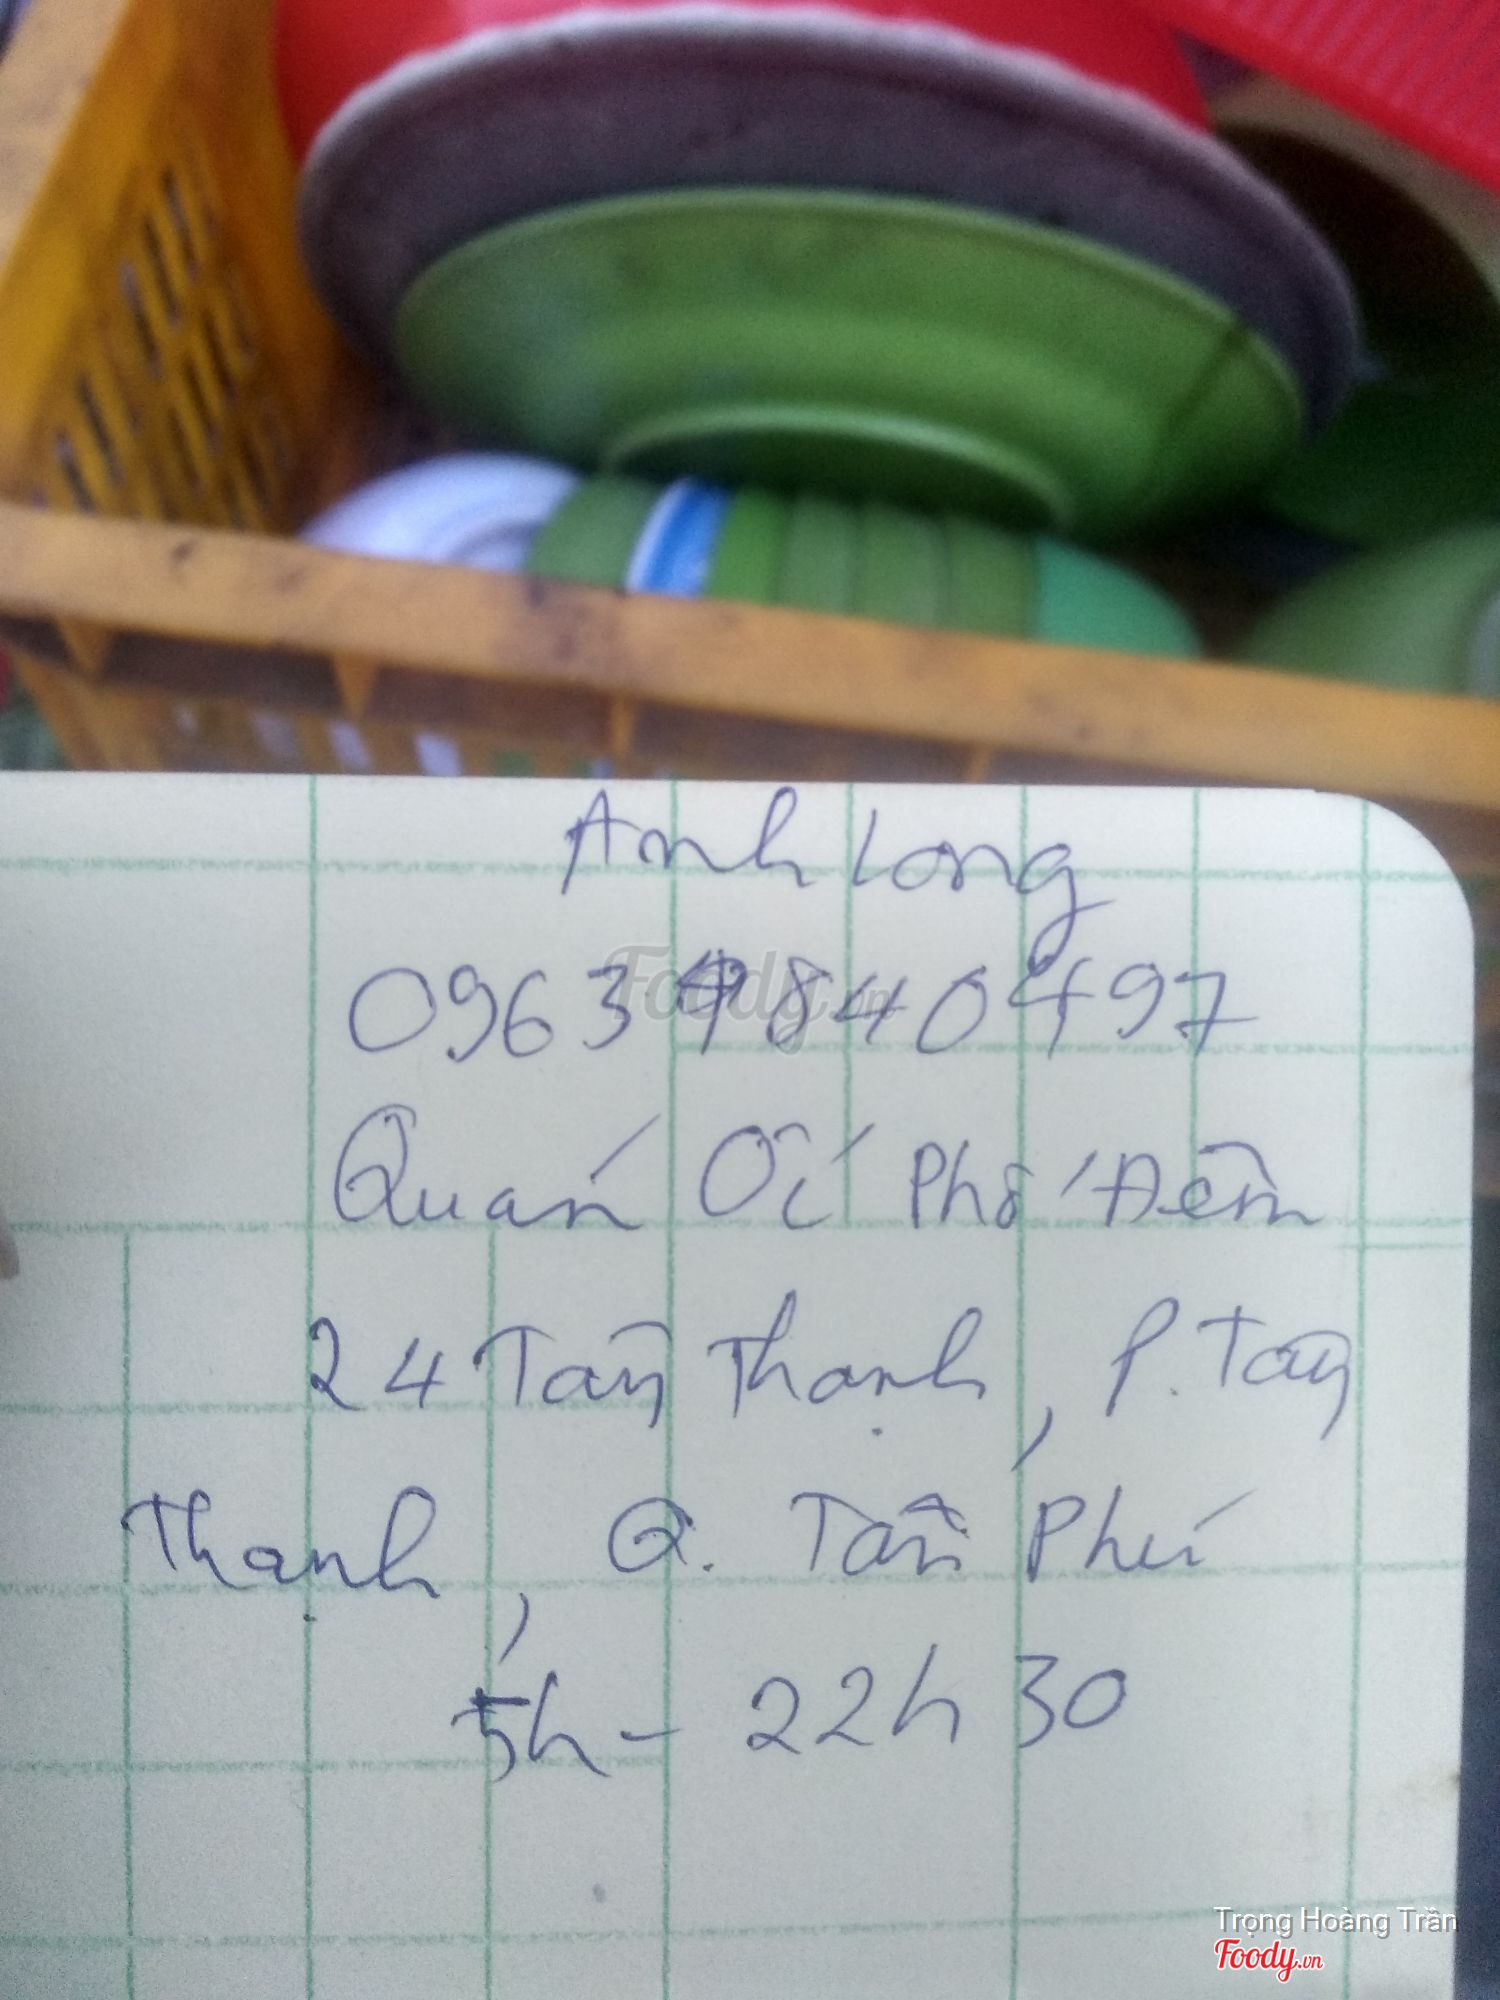 Anh Long
0963 9840497
Quán Ốc Phố Đêm
24 Tân Thạnh, P. Tân
Thạnh, Q. Tân Phú
5h - 22h30
Foody.vn
Trọng Hoàng Trần
Foody.vn